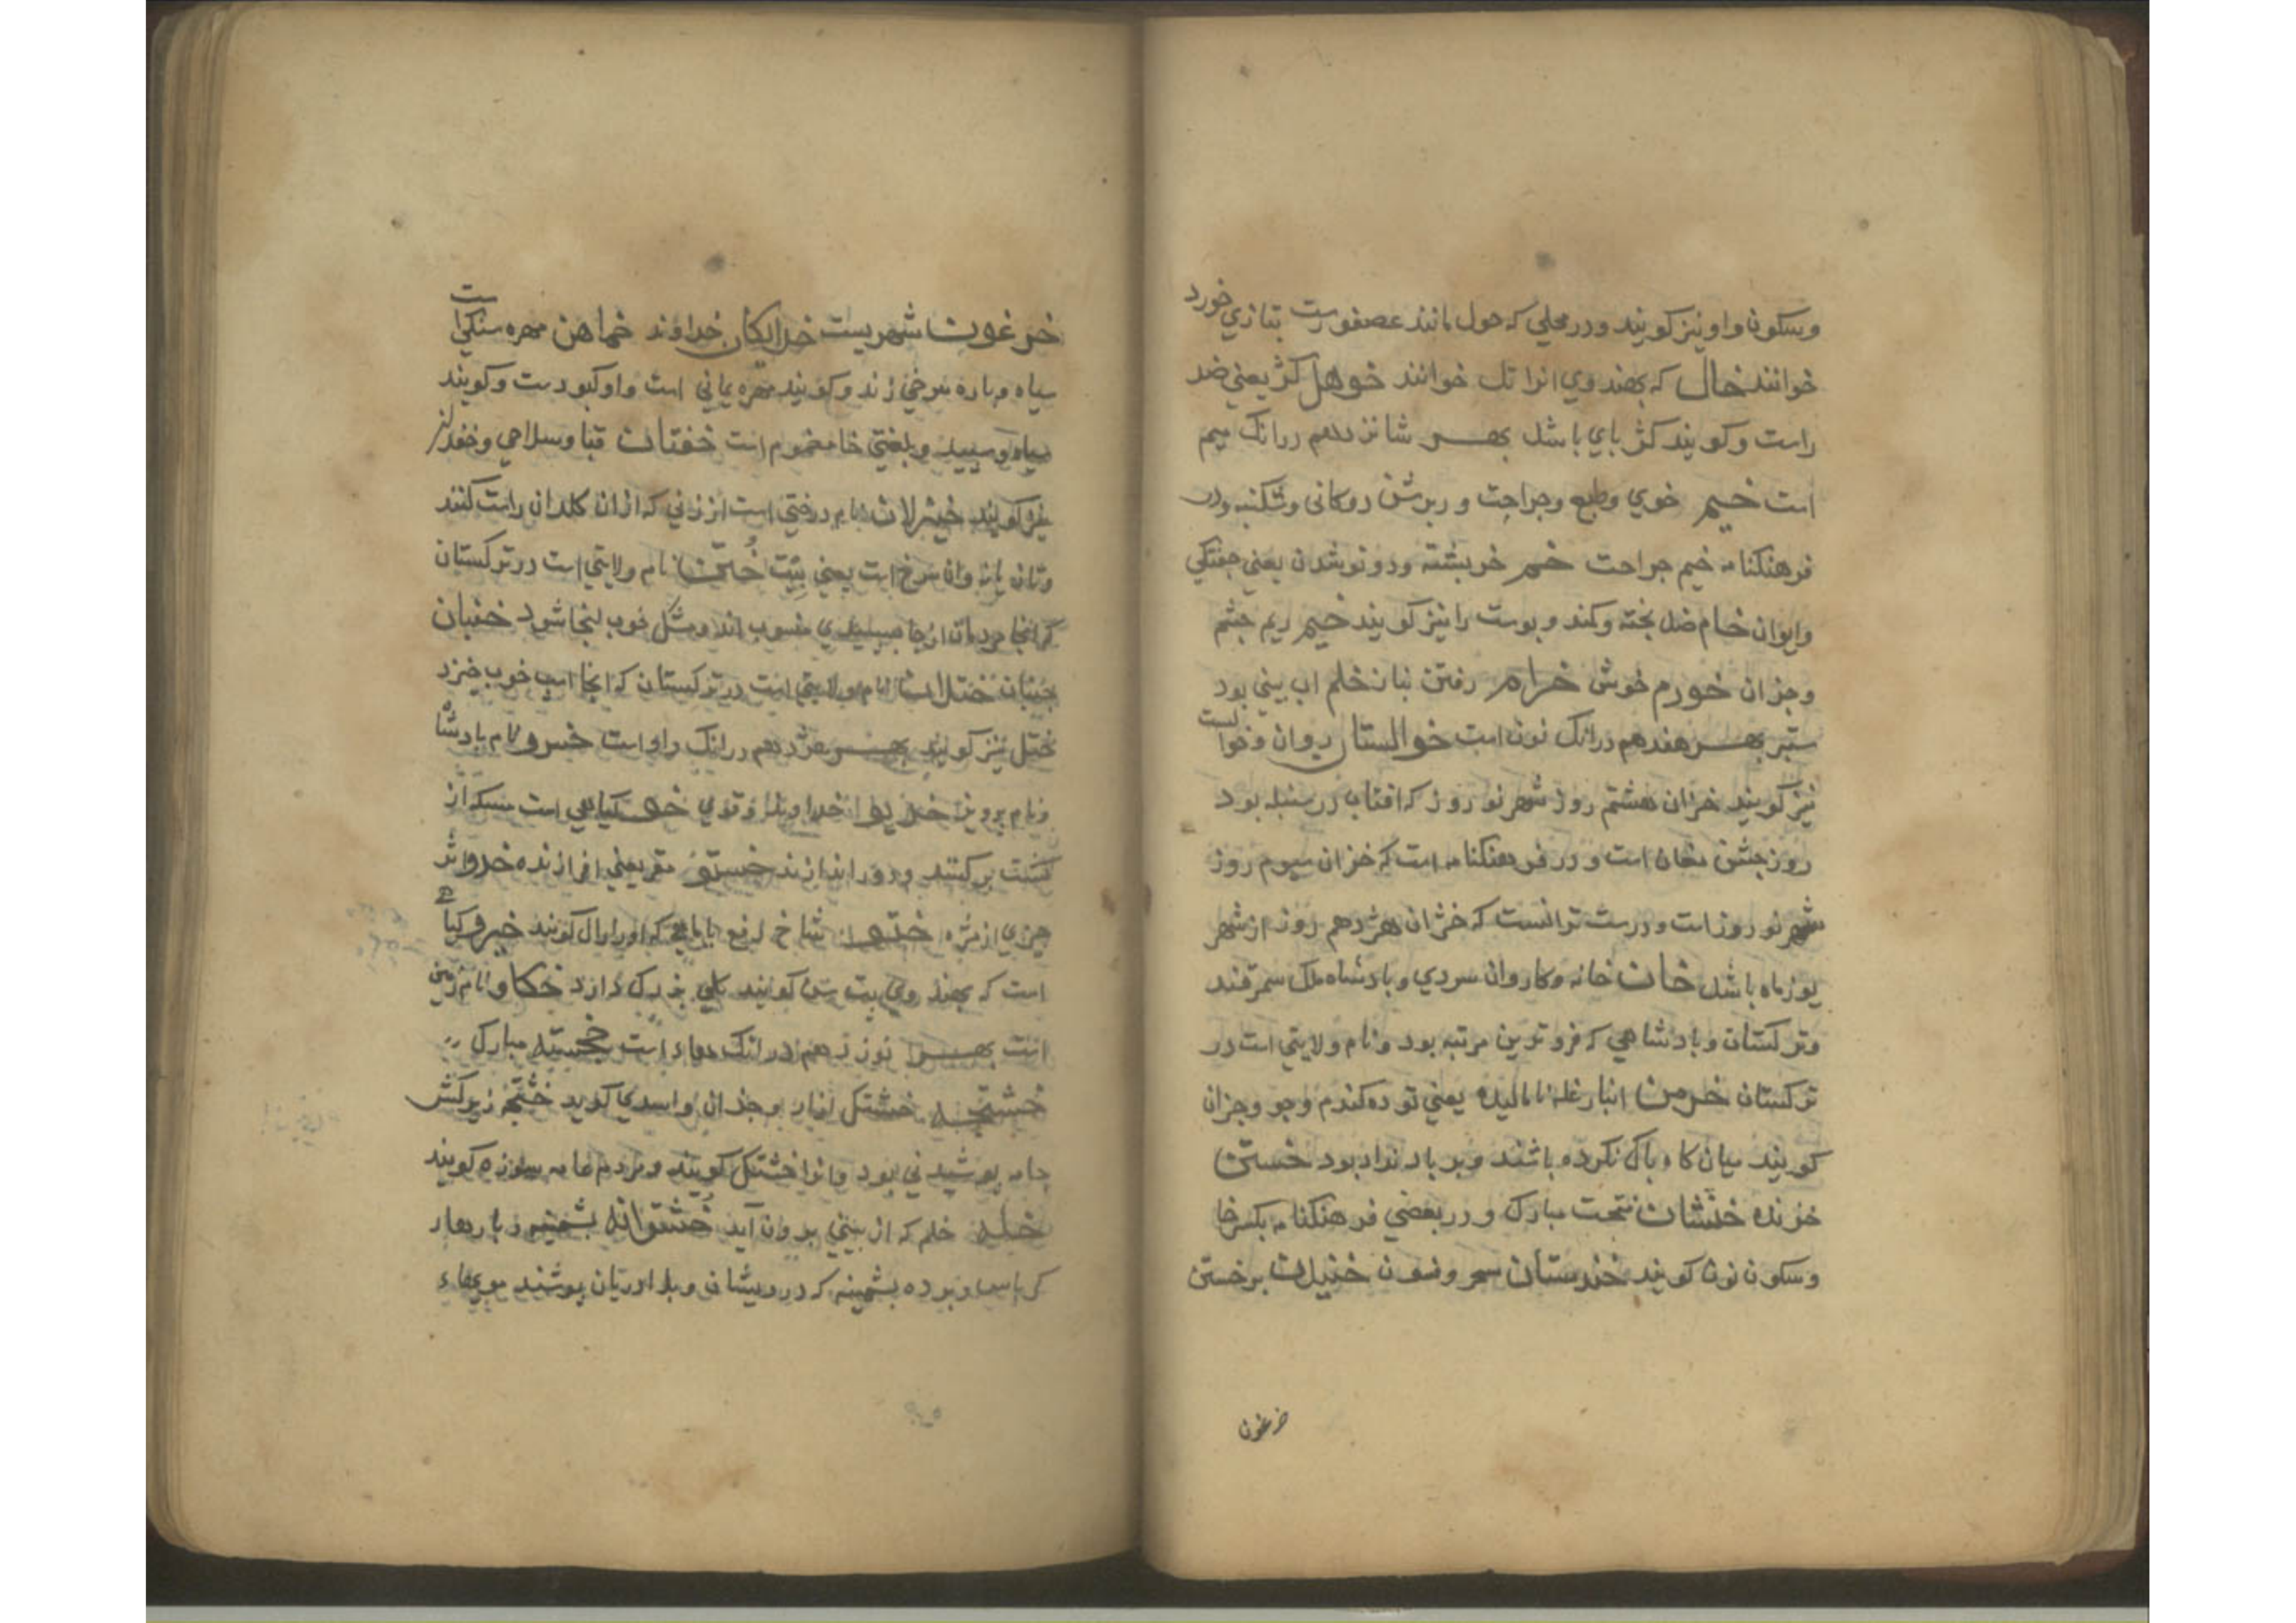 وسکون واو نیز کویند ودر محلي که حول مانند عصفورست بتازي خورد
خوانند خال که بهندوي انرا تل خوانند خوهل کژ یعني ضد
راست وکویند کژ باي باشد بهر شانزدهم درانک میم
است خیم خوي وطبع وجراحت و ربرش روکانی وشکنبه ودر
فرهنکنامه خیم جراحت خم خربشته ودوتوشدن یعني جفتکي
وایوان خام ضد بخته وکند وبوست را نیز کویند خیم ریم جشم
وجزان خورم خوش خرام رفتن بناز خلم اب بیني بود
ستبر بهر هفدهم درانک نون است خوالستان دوان وخوالست
نیز کویند خزان هشتم روز شهر نوروز که افتاب در سنبله بود
روز جشن مغان است و در فرهنکنامه است که خزان سیوم روز
شهر نوروز است ودرست ترانست که خزان هژدهم روز از شهر
یوزماه باشد خان خانه وکاروان سردي وبادشاه ملک سمرقند
وترکستان وبادشاهي که فروترین مرتبه بود ونام ولایتي است در
ترکستان خرمن انبار غله نامالیده یعني توده کندم وجو وجزان
کویند میان کاه باک نکرده باشند وبر باد نداد بود خستن
خزنده خنشان نتجت مبارک و در بعضي فرهنکنامه بکسر خا
وسکون نون کویند خندستان سحر وفسون خنیدن برخستن
خرغون
خرغون شهریست خدایکان خداوند خماهن مهره سنکی است
سیاه وباره سرخي زند وکویند مهره یماني است واو کبودست وکویند
سیاه وسبید وبلغتي خا مضموم است خفتان قبا وسلاحي وخفدان
نیز کویند خیزلان نام درختي است از زني که ازان کلدان راست کنند
وتان یانه وان سرخ است یعني بیت ختن نام ولایتي است در ترکستان
که انجا مردمان ازجا سبیدي منسوب اند ومشک خوب انجا شود خنبان
جنبان ختلان نام ولایتي است در ترکستان که انجا اسب خوب خیزد
ختل نیز کویند بهر هژدهم درانک واو است خسرو نام بادشاه
ونام برویز خدیو خداوند وقوي خو کیاهي است که از
کشت برکنند ودور اندازند خستو مقر یعني افرازنده
جیزي از مژه ختو شاخ خیرو کیاهي
است که بهندوي کویند خکاو نام زمین
است بهر نوزدهم درانک هاء است خجسته مبارک
خشتجه خشتک ازار وجزان واسدي کوید خشتجه زیرکش
جامه بوشیدني بود وانرا خشتک کویند ومردم عامه سوزه کویند
خله خلم که از بیني بروان آید خشتوانه بشمینه
کرباس وبرده بشمینه که درویشان وبلدا دریان بوشند مویهاء